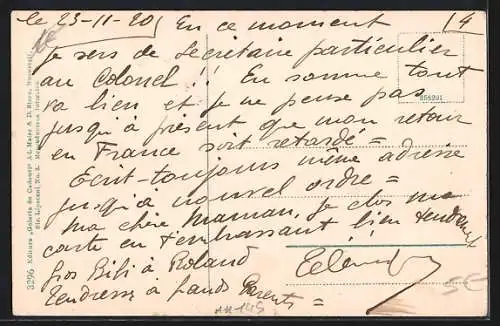 le 23-11-20 / En ce moment 14
je sers de Secrétaire particulier
au Colonel !! En somme tout
va bien et je ne pense pas
jusqu'à présent que mon retour
en France soit retardé =
Ecrit-toujours même adresse
jusqu'à nouvel ordre =
ma chère Maman, je clos ma
carte en t'embrassant bien tendrement
gros Bibi à Roland
Tendresse à Grands Parents =
256291
3296 Editura „Galeria de Cadouri" A.L. Maier & D. Stern, Bucuresti
Str. Lipscani No.
5€